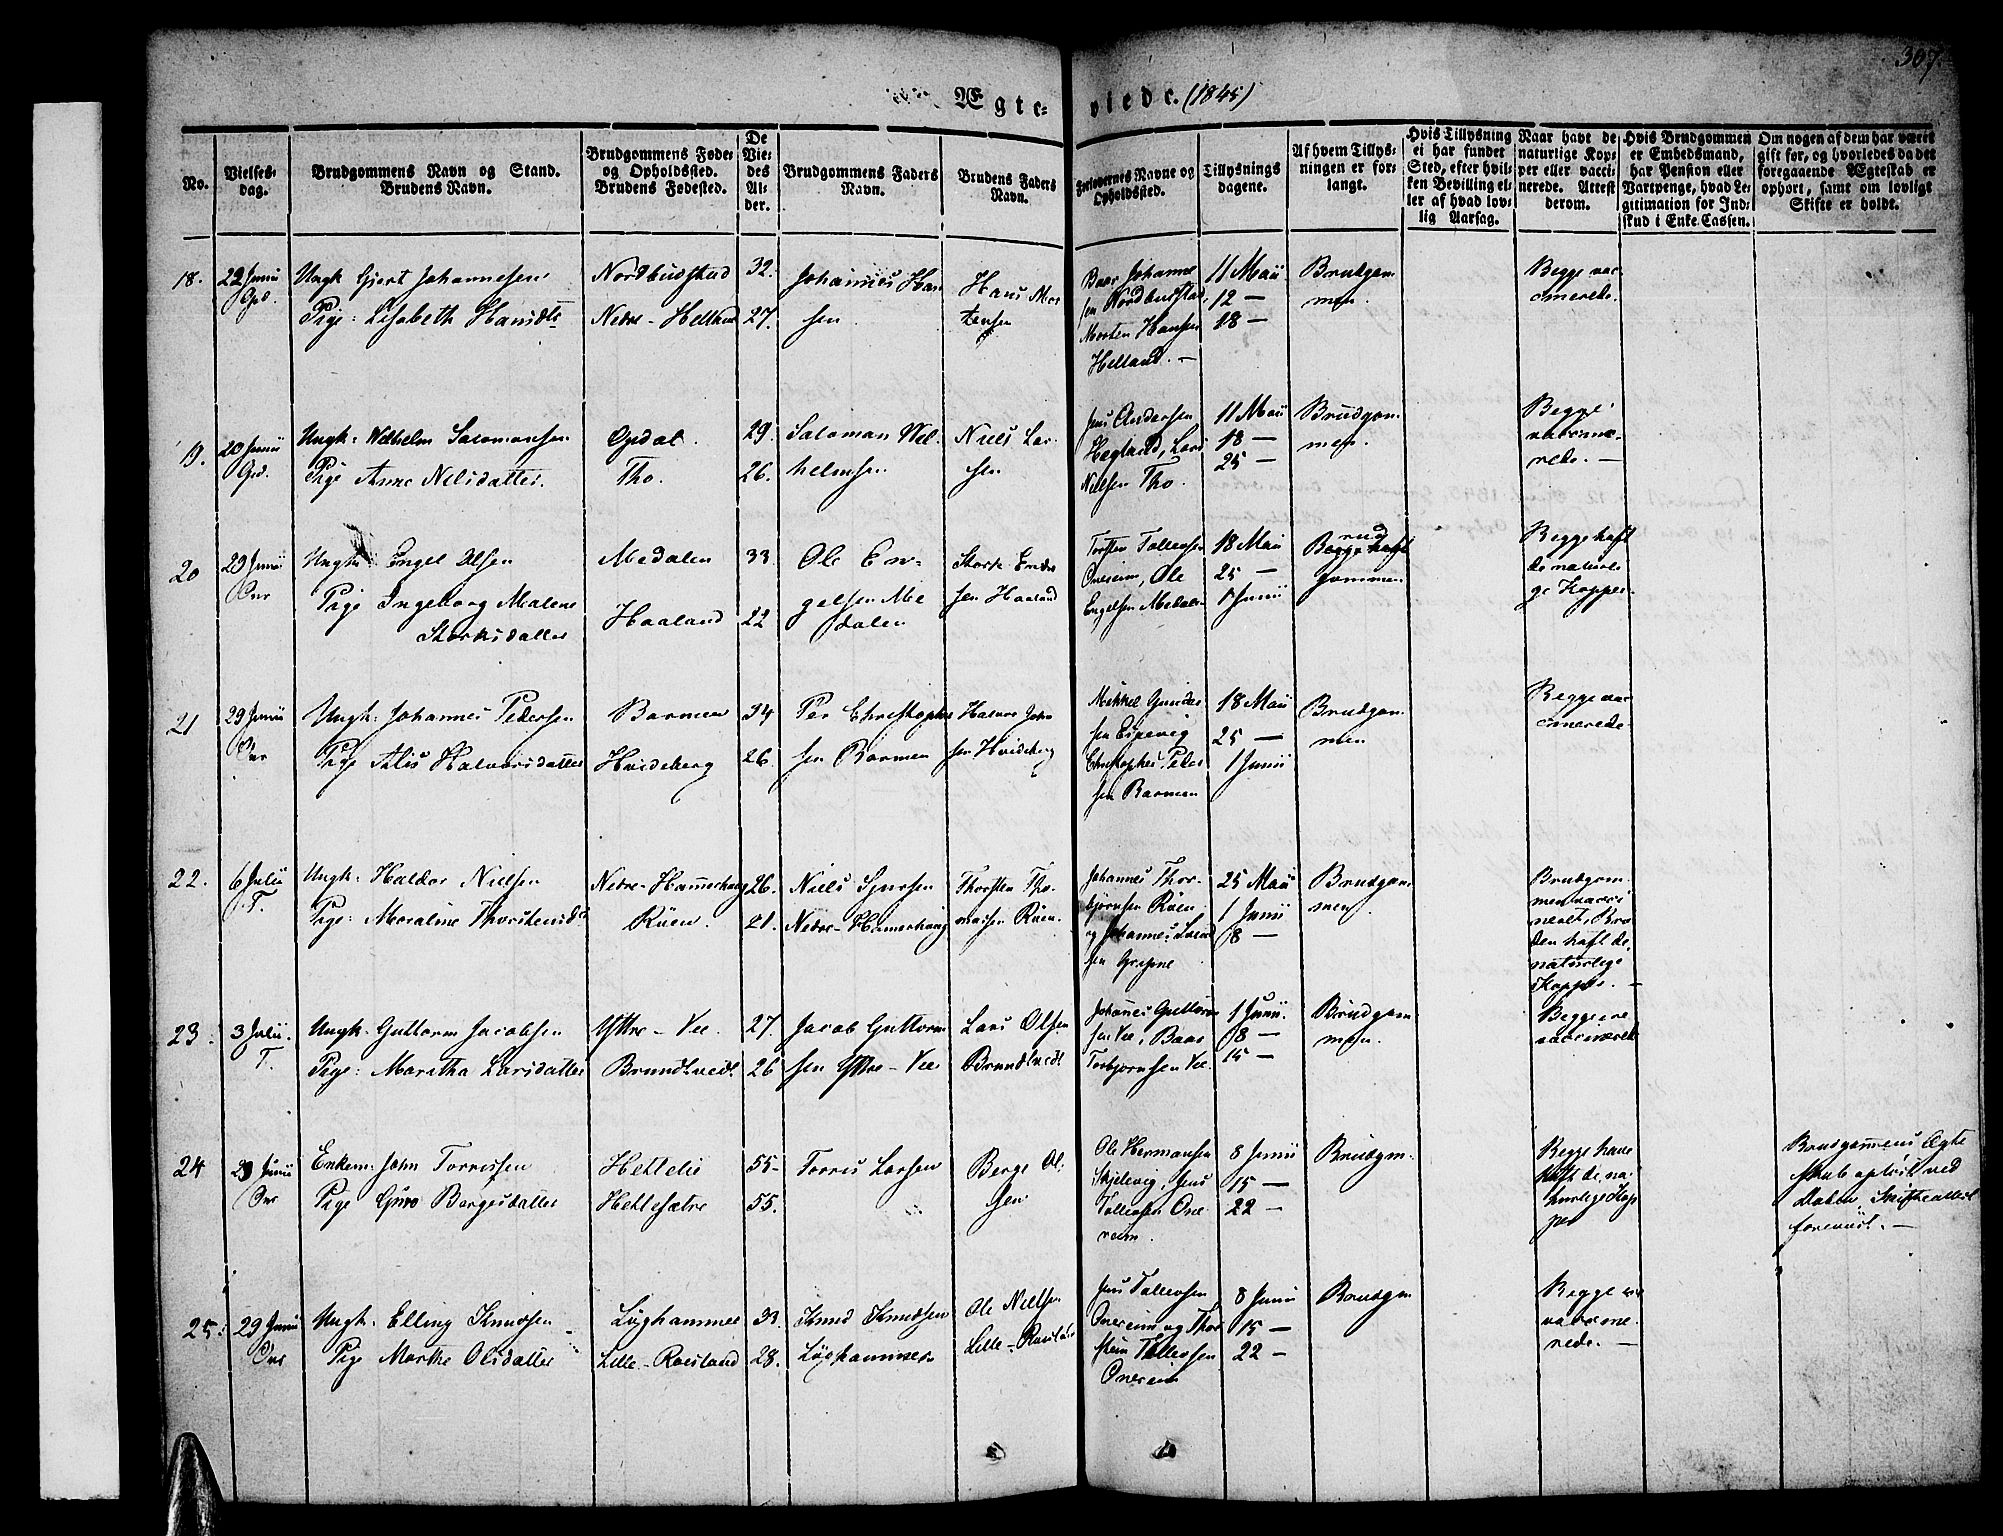 307.
Ægte- viede. (1845)
No.
Vielses-
dag.
Brudgommens Navn og Stand.
Brudens Navn.
Brudgommens Føde-
og Opholdssted.
Brudens Fødested.
De
Vie-
des
Al-
der.
Brudgommens Faders
Navn.
Brudens Faders
Navn.
Forlovernes Navne og
Opholdssted.
Tillysnings
dagene.
Af hvem Tillys-
ningen er for-
langt.
Hvis Tillysning
ei har fundet
Sted, efter hvil-
ken Bevilling el-
ler af hvad lov-
lig Aarsag.
Naar havt de
naturlige Kop-
per eller vacci-
nerede. Attest
derom.
Hvis Brudgommen
er Embedsmand,
har Pension eller
Vartpenge, hvad Le-
gitimation for Ind-
skud i Enke-Cassen.
Om nogen af dem har været
gift før, og hvorledes da det
foregaaende Ægtestab er
ophørt, samt om lovligt
Skifte er holdt.
18.
22 Junii
Opd.
Ungk Gjert Johannesen
Pige: Lisabeth Hansdtr
Nordbustad
Nedre-Helland
32.
27.
Johannes Han
sen
Hans Mor
tensen
Baar Johanne
sen Nordbustad,
Morten Hansen
Helland. —
11 Maii
12 —
18 —
Brudgom
men.
Begge vac
cinerede.
19.
20 Junii
Opd.
Ungk: Wilhelm Salomonsen
Pige Anne Nilsdatter.
Opdal.
Tho.
29.
26.
Saloman Wil-
helmsen
Niels Lar
sen
Jens Andersen
Hegland, Lars
Nielsen Tho.
11 Maii
18 —
25 —
Brudgom
men.
Begge
vaccine-
rede. —
20
29 Junii
Onr
Ungk: Engel Olsen
Pige Ingeborg Malene
Storksdatter
Medalen
Haaland
33
22
Ole En-
gelsen Me
dalen
Stork Endre
sen Haaland
Torsten Tollevsen
Onereim, Ole
Engelsen Medalen
18 Maii
25 —
1 Junii
Brud
gommen
Begge haft
de naturli
ge Kopper.
21
29 Junii
Onr
Ungk: Johannes Pedersen
Pige Alis Halvorsdatter
Barmen
Hvideberg
34
26.
Per Christopher
sen Barmen
Halvor John
sen Hvideberg
Mikkel Gunder
sen Espevig
Christopher Peder
sen Barmen
18 Maii
25 —
1 Junii
Brudgom
men
Begge vac
cinerede
22.
6 Julii
T.
Ungk: Haldor Nielsen
Pige: Maraline Thorstensdr
Nedre-Hammerhoug
Rüen.
26.
21.
Niels Sjursen
Nedre-Hamerhoug
Thorsten Tho-
massen Rüen.
Johannes Thor-
bjørnsen Rüen
og Johannes Larsen
25 Maii
1 Junii
8 —
Brudgom
men.
Brudgom
men vacci
neret, Bru
den haft de
naturlige
Kopper. —
23.
3 Julii.
T.
Ungk. Guttorm Jacobsen
Pige: Maritha Larsdatter
Ytre-Vee
Brundtvedt
27.
26
Jacob Guttorm
sen Ytre-Vee
Lars Olsen
Brundtvedt
Johanes Guttorm
sen Vee, Baar
Torbjørnsen Vee.
1 Junii.
8 —
15 —
Brudgom
men.
Begge re
vaccinerede
24
29 Junii
Onr
Enkem: John Torrissen
Pige Guro Bergesdatter
Hettelie
Hettesætre
55-
55.
Torris Larsen
Berge Ol-
sen
Ole Hermansen
Skjelevig, Jens
Tollevsen One
reim.
8 Junii
15 —
22 —
Brudgm.
Begge have
haft de na-
turlige Kop
per
Brudgommens Ægte
skab opløst ved
Døden, Skifteattest
foreviist. —
25.
29 Junii
Onr
Ungk: Elling Knudsen
Pige Marthe Olsdatter
Lüghammer
Lille-Roesland
33.
28.
Knud Knudsen
Løghammer
Ole Nielsen
Lille-Roesland
Jens Tollevsen
Onereim og Thor
stein Tollevsen
Onereim
8 Junii
15 —
22 —
Brudgm
Begge re
vaccine-
rede. —